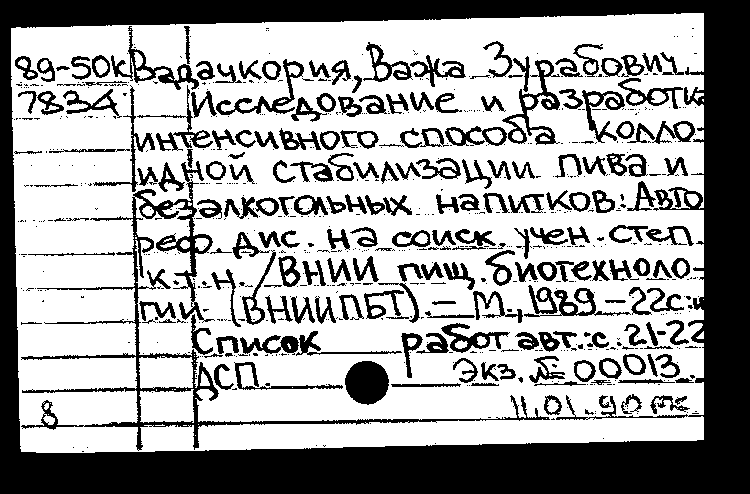 89-50к Вадачкория, Важа Зурабович.
7834 Исследование и разработка
интенсивного способа колло-
идной стабилизации пива и
безалкогольных напитков: Авто
реф. дис. на соиск. учен. степ.
к.т.н. / ВНИИ пищ. биотехноло-
гии (ВНИИПБТ). – М., 1989 – 22с: и
Список работ авт.: с. 21-22
ДСП. Экз. № 00013.
8 11.01.90